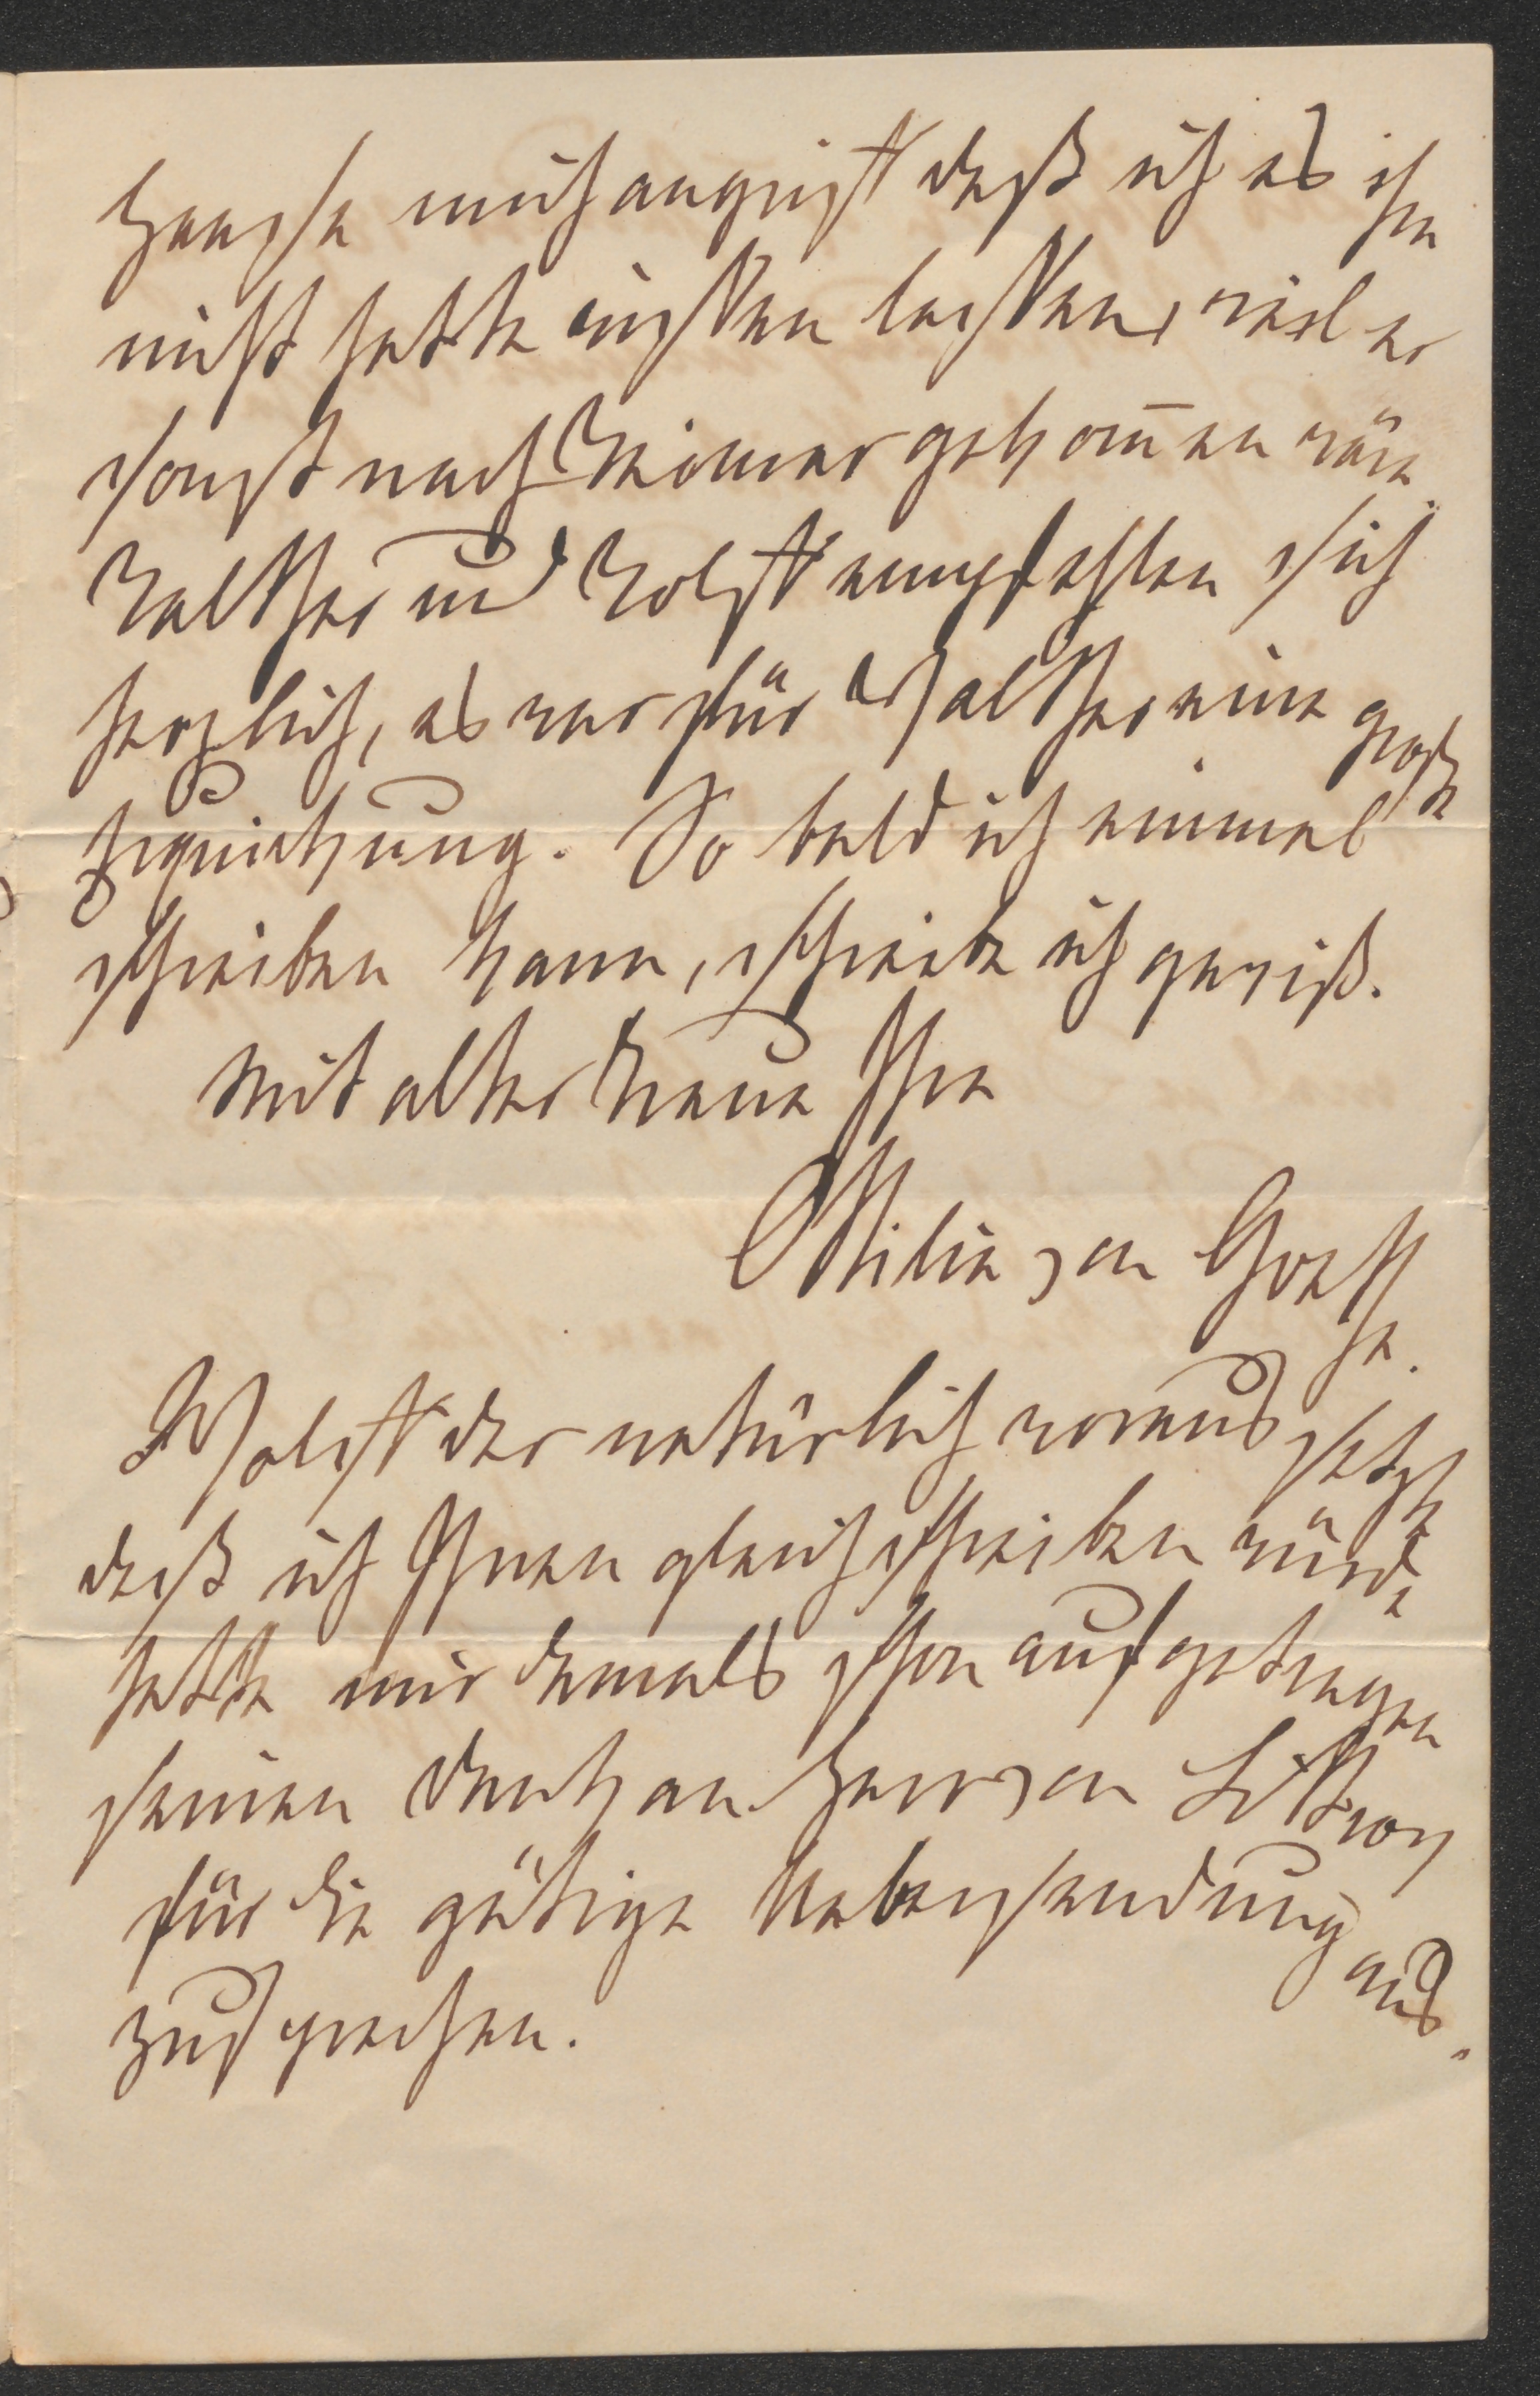 mich angreift daß ich es ihn
nicht hatte wissen lassen, weil er
sonst nach Weimar gekom̄en wäre.
Walther und Wolf empfehlen sich
herzlich, es war für Walther eine große
Erquickung. So bald ich einmal
schreiben kann, schreibe ich gewiß.
Mit alter Treue Ihre
Ottilie von Goethe.
Wolf der natürlich voraus setzte
daß ich Ihnen gleich schreiben würde
hatte mir damals schon aufgetragen
seinen Dank an Herr von Littrow
für die gütige Uebersendung aus-
zusprechen.